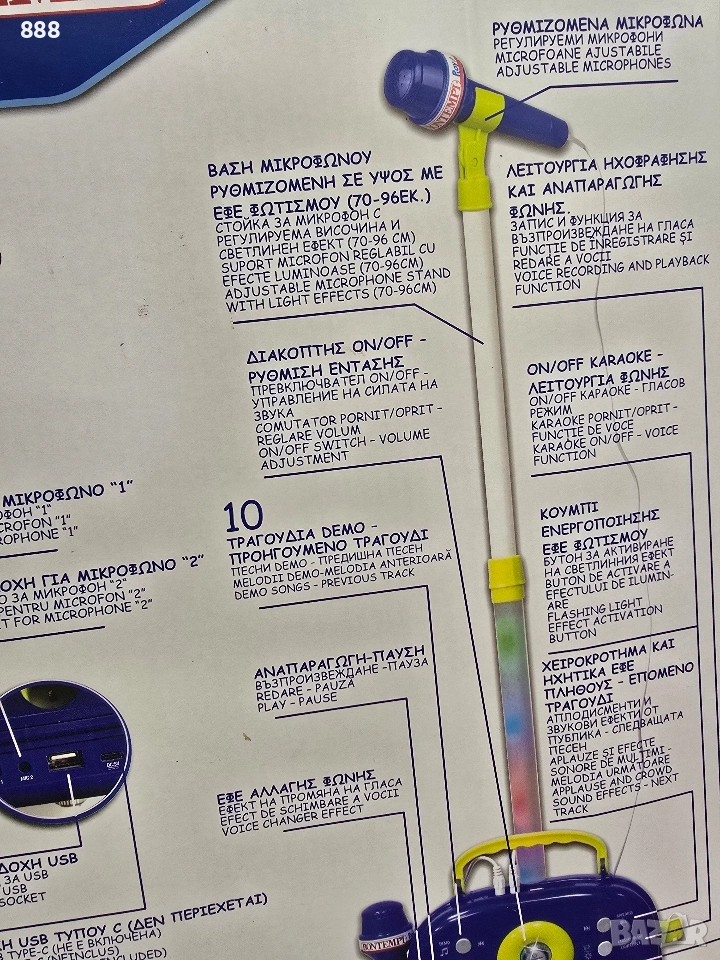 888
ΡΥΘΜΙΖΟΜΕΝΑ ΜΙΚΡΟΦΩΝΑ
РЕГУЛИРУЕМИ МИКРОФОНИ
MICROFOANE AJUSTABILE
ADJUSTABLE MICROPHONES
BONTEMPI
ΒΑΣΗ ΜΙΚΡΟΦΩΝΟΥ
ΡΥΘΜΙΖΟΜΕΝΗ ΣΕ ΥΨΟΣ ΜΕ
ΕΦΕ ΦΩΤΙΣΜΟΥ (70-96ΕΚ.)
СТОЙКА ЗА МИКРОФОН С
РЕГУЛИРУЕМА ВИСОЧИНА И
СВЕТЛИНЕН ЕФЕКТ (70-96 СМ)
SUPORT MICROFON REGLABIL CU
EFECTE LUMINOASE (70-96CM)
ADJUSTABLE MICROPHONE STAND
WITH LIGHT EFFECTS (70-96CM)
ΛΕΙΤΟΥΡΓΙΑ ΗΧΟΦΡΑΦΗΣΗΣ
ΚΑΙ ΑΝΑΠΑΡΑΓΩΓΗΣ
ΦΩΝΗΣ.
ЗАПИС И ФУНКЦИЯ ЗА
ВЪЗПРОИЗВЕЖДАНЕ НА ГЛАСА
FUNCȚIE DE ÎNREGISTRARE ȘI
REDARE A VOCII
VOICE RECORDING AND PLAYBACK
FUNCTION
ΔΙΑΚΟΠΤΗΣ ON/OFF -
ΡΥΘΜΙΣΗ ΕΝΤΑΣΗΣ
ПРЕВКЛЮЧВАТЕЛ ON/OFF -
УПРАВЛЕНИЕ НА СИЛАТА НА
ЗВУКА
COMUTATOR PORNIT/OPRIT -
REGLARE VOLUM
ON/OFF SWITCH - VOLUME
ADJUSTMENT
ON/OFF KARAOKE -
ΛΕΙΤΟΥΡΓΙΑ ΦΩΝΗΣ
ON/OFF КАРАОКЕ - ГЛАСОВ
РЕЖИМ
KARAOKE PORNIT/OPRIT -
FUNCȚIE DE VOCE
KARAOKE ON/OFF - VOICE
FUNCTION
ΜΙΚΡΟΦΩΝΟ "1"
ΟΦΟΗ "1"
CROFON "1"
ROPHONE "1"
10
ΤΡΑΓΟΥΔΙΑ DEMO -
ΠΡΟΗΓΟΥΜΕΝΟ ΤΡΑΓΟΥΔΙ
ПЕСНИ DEMO - ПРЕДИШНА ПЕСЕН
MELODII DEMO-MELODIA ANTERIOARĂ
DEMO SONGS - PREVIOUS TRACK
ΚΟΥΜΠΙ
ΕΝΕΡΓΟΠΟΙΗΣΗΣ
ΕΦΕ ΦΩΤΙΣΜΟΥ
БУТОН ЗА АКТИВИРАНЕ
НА СВЕТЛИННИЯ ЕФЕКТ
BUTON DE ACTIVARE A
EFECTULUI DE ILUMIN-
ARE
FLASHING LIGHT
EFFECT ACTIVATION
BUTTON
ΟΧΗ ΓΙΑ ΜΙΚΡΟΦΩΝΟ "2"
О ЗА МИКРОФОН "2"
PENTRU MICROFON "2"
T FOR MICROPHONE "2"
ΑΝΑΠΑΡΑΓΩΓΗ-ΠΑΥΣΗ
ВЪЗПРОИЗВЕЖДАНЕ -ПАУЗА
REDARE - PAUZĂ
PLAY - PAUSE
ΧΕΙΡΟΚΡΟΤΗΜΑ ΚΑΙ
ΗΧΗΤΙΚΑ ΕΦΕ
ΠΛΗΘΟΥΣ - ΕΠΟΜΕΝΟ
ΤΡΑΓΟΥΔΙ
АПЛОДИСМЕНТИ И
ЗВУКОВИ ЕФЕКТИ ОТ
ПУБЛИКА - СЛЕДВАЩАТА
ПЕСЕН
APLAUZE ȘI EFECTE
SONORE DE MULȚIMI-
MELODIA URMĂTOARE
APPLAUSE AND CROWD
SOUND EFFECTS - NEXT
TRACK
MIC 2
DC 5V
ΕΦΕ ΑΛΛΑΓΗΣ ΦΩΝΗΣ
ЕФЕКТ НА ПРОМЯНА НА ГЛАСА
EFECT DE SCHIMBARE A VOCII
VOICE CHANGER EFFECT
ΔΟΧΗ USB
ЗА USB
USB
SOCKET
Η USB ΤΥΠΟΥ C (ΔΕΝ ΠΕΡΙΕΧΕΤΑΙ)
TYPE-C (НЕ Е ВКЛЮЧЕНА)
BONTEMPI
BAZAR